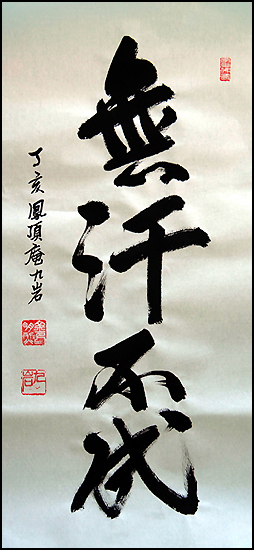 無汗不成
丁亥鳳頂庵九岩